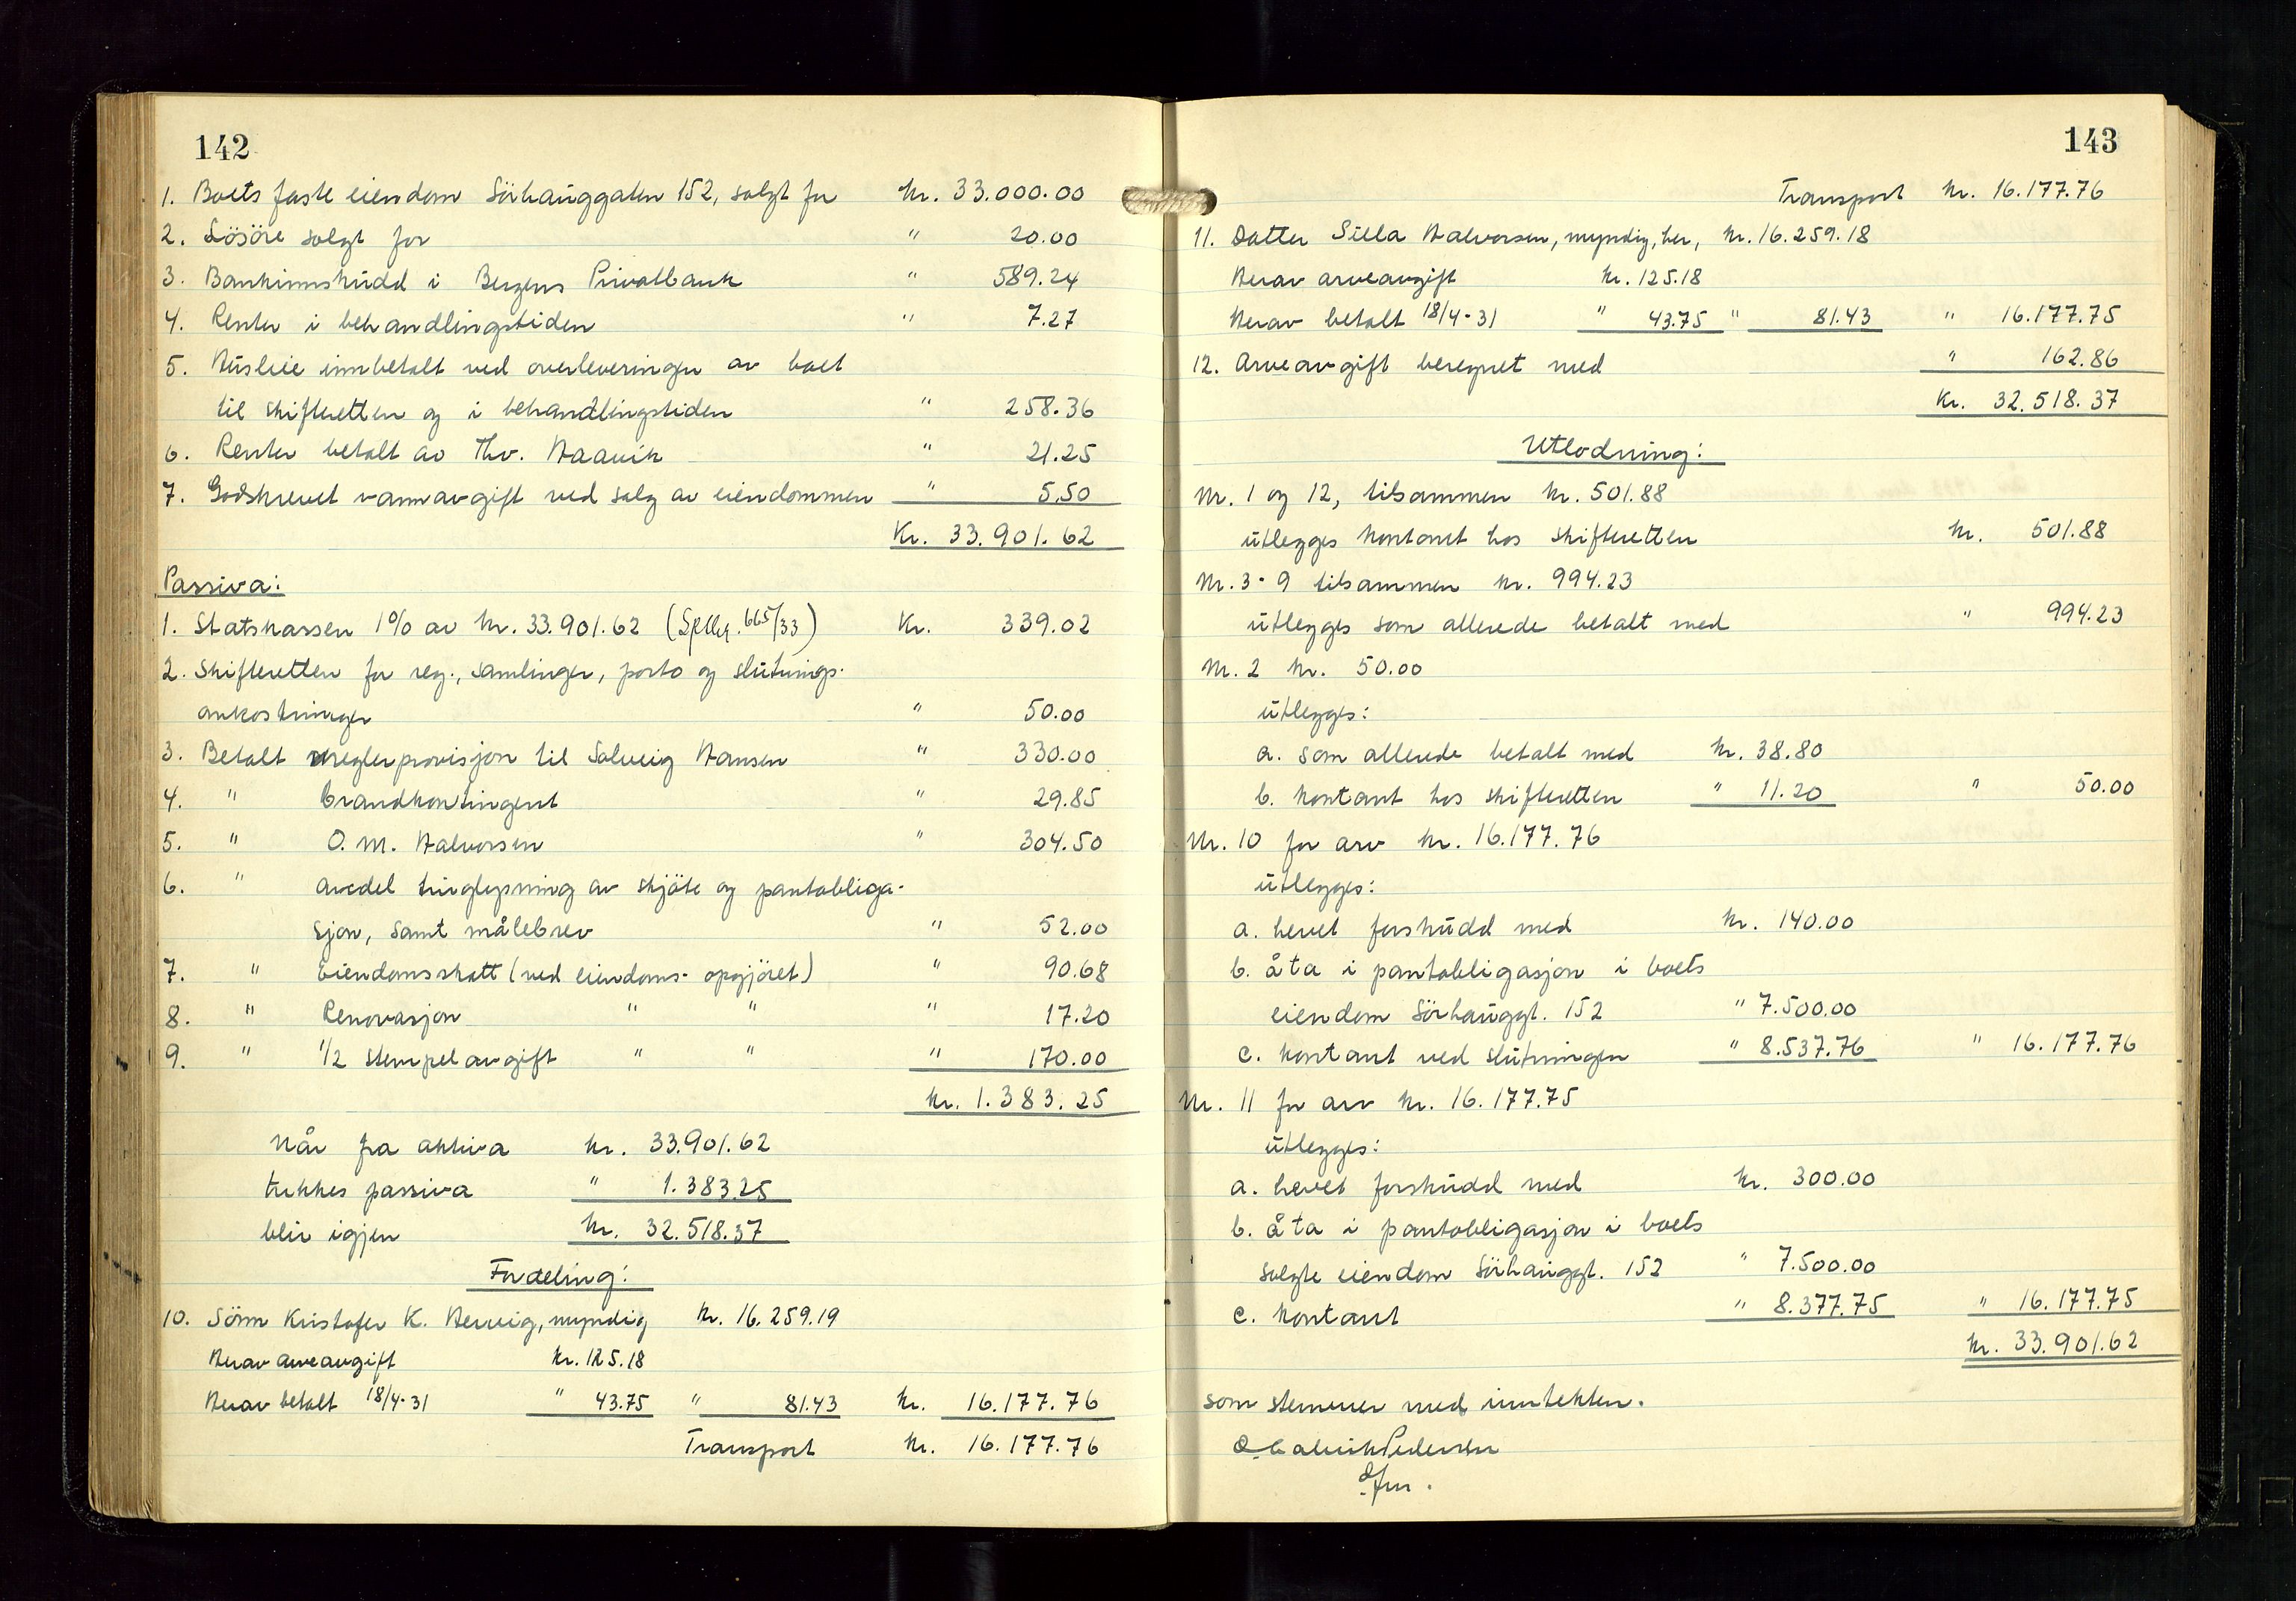 142
1. Boets faste eiendom Sörhauggaten 152, solgt for kr. 33.000.00
2. Lösöre solgt for " 20.00
3. Bankinnskudd i Bergens Privatbank " 589.24
4. Renter i behandlingstiden " 7.27
5. Husleie innbetalt ved overleveringen av boet
til skifteretten og i behandlingstiden " 258.36
6. Renter betalt av Thv. Haavik " 21.25
7. Godskrevet vannavgift ved salg av eiendommen " 5.50
Kr. 33.901.62
Passiva:
1. Statskassen 1% av kr. 33.901.62 (Sptlbr. 665/33) Kr. 339.02
2. Skifteretten for reg., samlinger, porto og slutnings-
omkostninger " 50.00
3. Betalt meglerprovisjon til Solveig Hansen " 330.00
4. " brandkontingent " 29.85
5. " O. M. Halvorsen " 304.50
6. " avedel tinglysning av skjöte og pantobliga-
sjon, samt målebrev " 52.00
7. " Eiendomsskatt (ved eiendoms-opgjöret) " 90.68
8. " Renovasjon " " " 17.20
9. " 1/2 stempelavgift " " " 170.00
kr. 1.383.25
Når fra aktiva kr. 33.901.62
trekkes passiva " 1.383.25
blir igjen kr. 32.518.37
Fordeling:
10. Sönn Kristofer K. Hervig, myndig kr. 16.259.19
Herav arveavgift kr. 125.18
Herav betalt 18/4-31 " 43.75 " 81.43 kr. 16.177.76
Transport kr. 16.177.76
143
Transport kr. 16.177.76
11. Datter Sella Halvorsen, myndig, her, kr. 16.259.18
Herav arveavgift kr. 125.18
Herav betalt 18/4-31 " 43.75 " 81.43 " 16.177.75
12. Arveavgift beregnet med " 162.86
Kr. 32.518.37
Utlodning:
Nr. 1 og 12, tilsammen kr. 501.88
utlegges kontant hos skifteretten kr. 501.88
Nr. 3-9 tilsammen kr. 994.23
utlegges som allerede betalt med " 994.23
Nr. 2 kr. 50.00
utlegges:
a. som allerede betalt med kr. 38.80
b. kontant hos skifteretten " 11.20 " 50.00
Nr. 10 for arv kr. 16.177.76
utlegges:
a. hevet forskudd med kr. 140.00
b. åta i pantobligasjon i boets
eiendom Sörhauggt. 152 " 7.500.00
c. kontant ved slutningen " 8.537.76 " 16.177.76
Nr. 11 for arv kr. 16.177.75
utlegges:
a. hevet forskudd med kr. 300.00
b. åta i pantobligasjon i boets
solgte eiendom Sörhauggt. 152 " 7.500.00
c. kontant " 8.377.75 " 16.177.75
kr. 33.901.62
som stemmer med inntekten.
Pedersen